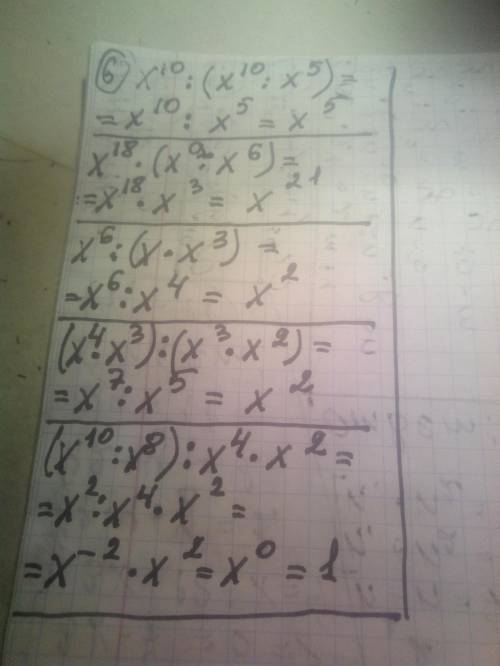 6) x¹⁰ : (x¹⁰ : x⁵) =
= x¹⁰ : x⁵ = x⁵
x¹⁸ · (x⁹ : x⁶) =
= x¹⁸ · x³ = x²¹
x⁶ : (x · x³) =
= x⁶ : x⁴ = x²
(x⁴ · x³) : (x³ · x²) =
= x⁷ : x⁵ = x²
(x¹⁰ : x⁸) : x⁴ · x² =
= x² : x⁴ · x² =
= x⁻² · x² = x⁰ = 1